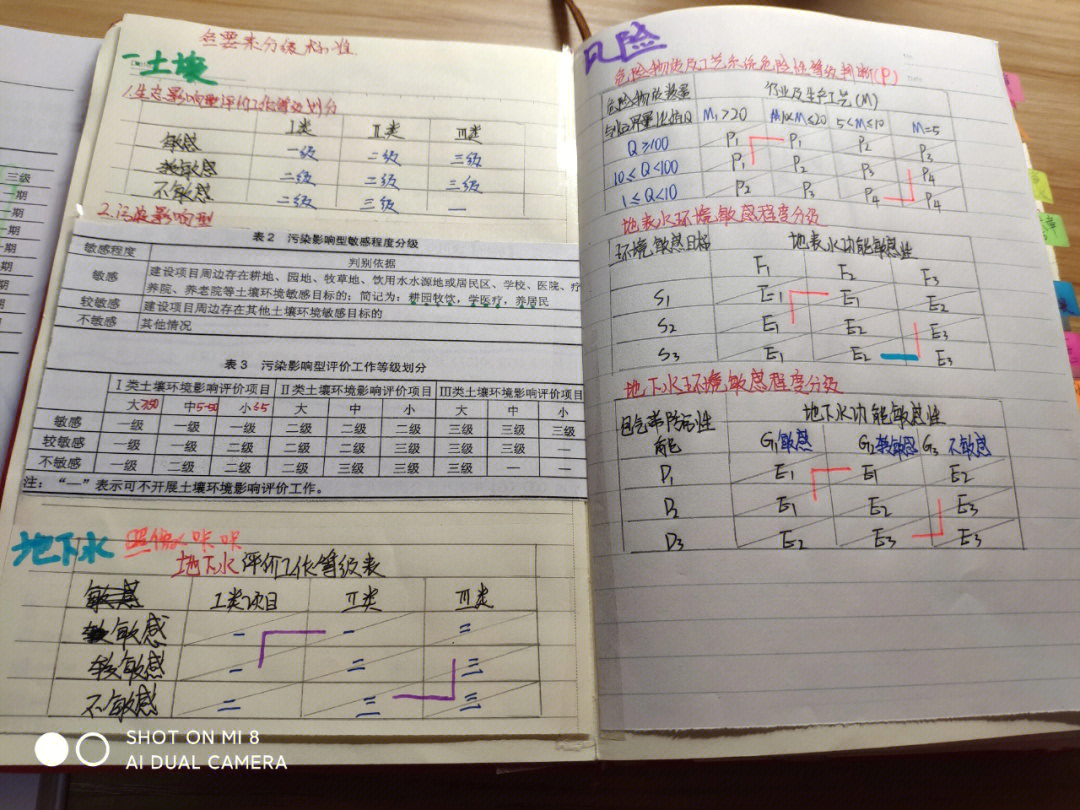 三级
一期
一期
一期
一期
期
期
一土壤
1.生态影响型评价工作等级划分
Ⅰ类 Ⅱ类 Ⅲ类
敏感 一级 二级 三级
较敏感 二级 二级 三级
不敏感 二级 三级 —
2.污染影响型
表2 污染影响型敏感程度分级
敏感程度 判别依据
敏感 建设项目周边存在耕地、园地、牧草地、饮用水水源地或居民区、学校、医院、疗
养院、养老院等土壤环境敏感目标的；简记为：耕园牧饮，学医疗，养居民
较敏感 建设项目周边存在其他土壤环境敏感目标的
不敏感 其他情况
表3 污染影响型评价工作等级划分
Ⅰ类土壤环境影响评价项目 Ⅱ类土壤环境影响评价项目 Ⅲ类土壤环境影响评价项目
大≥50 中5-50 小≤5 大 中 小 大 中 小
敏感 一级 一级 一级 二级 二级 二级 三级 三级 三级
较敏感 一级 一级 二级 二级 二级 三级 三级 三级 —
不敏感 一级 二级 二级 二级 三级 三级 三级 — —
注：“—”表示可不开展土壤环境影响评价工作。
地下水 照像人咔咔
地下水评价工作等级表
敏感 Ⅰ类项目 Ⅱ类 Ⅲ类
敏感 一 一 二
较敏感 一 二 三
不敏感 二 三 三
风险
危险物质及工艺系统危险性等级判断(P)
危险物质数量 行业及生产工艺(M)
与临界量比值Q M₁>20 10<M≤20 5<M≤10 M=5
Q≥100 P₁ P₁ P₂ P₃
10≤Q<100 P₁ P₂ P₃ P₄
1≤Q<10 P₂ P₃ P₄ P₄
地表水环境敏感程度分级
环境敏感目标 地表水功能敏感性
F₁ F₂ F₃
S₁ E₁ E₁ E₂
S₂ E₁ E₂ E₃
S₃ E₁ E₂ E₃
地下水环境敏感程度分级
包气带防污性 地下水功能敏感性
能 G₁敏感 G₂较敏感 G₃不敏感
D₁ E₁ E₁ E₂
D₂ E₁ E₂ E₃
D₃ E₂ E₃ E₃
SHOT ON MI 8
AI DUAL CAMERA